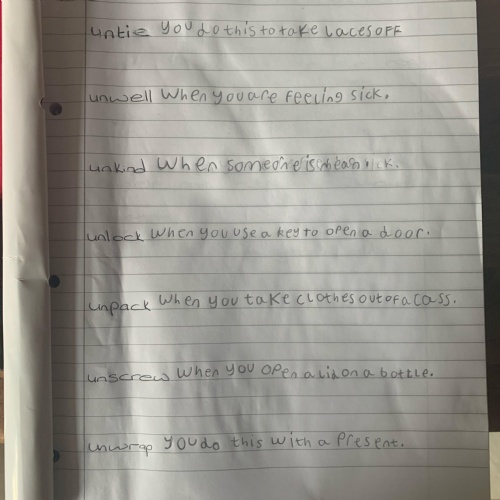 untie you do this to take laces off
unwell when you are feeling sick.
unkind when someone is mean
unlock when you use a key to open a door.
unpack when you take clothes out of a cass.
unscrew when you open a lid on a bottle.
unwrap you do this with a present.